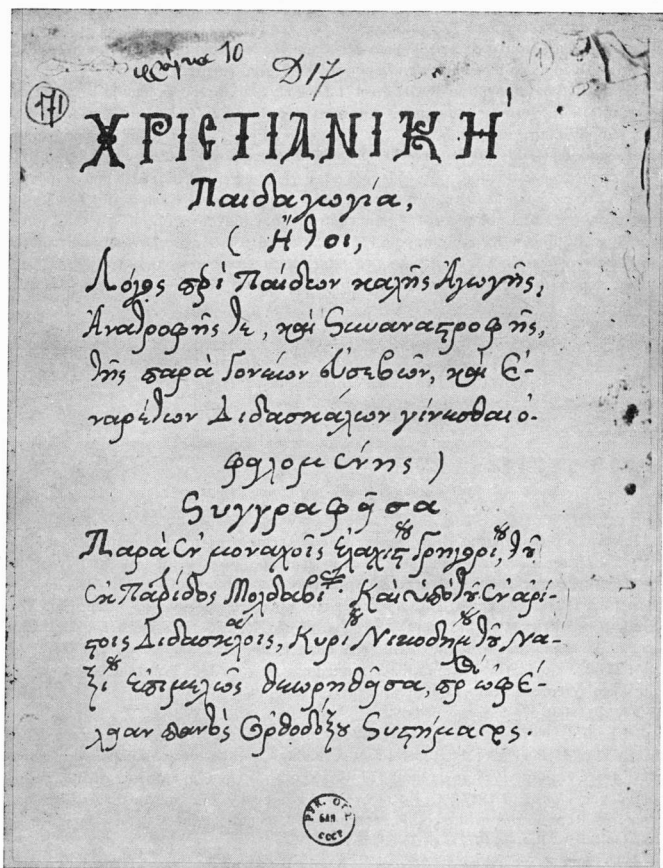 φάκα 10
Д17
(1)
171
ΧΡΙΣΤΙΑΝΙΚΗ
Παιδαγωγία,
( Ἤτοι,
Λόγος περὶ Παίδων καλῆς Ἀγωγῆς,
Ἀνατροφῆς τε, καὶ Συναναστροφῆς,
τῆς παρὰ Γονέων εὐσεβῶν, καὶ Ἐ-
ναρέτων Διδασκάλων γίνεσθαι ὀ-
φειλομένης )
Συγγραφεῖσα
Παρὰ ἐν μοναχοῖς ἐλαχίστου Γρηγορίου, τοῦ
ἐκ Πατρίδος Μολδαβίας· Καὶ ὑπὸ τοῦ ἐν ἀρί-
στοις Διδασκάλοις, Κυρίου Νικοδήμου τοῦ Να-
ξίου ἐπιμελῶς θεωρηθεῖσα, πρὸς ὠφέ-
λειαν παντὸς Ὀρθοδόξου Συστήματος.
РУК. ОТД.
БАН
СССР